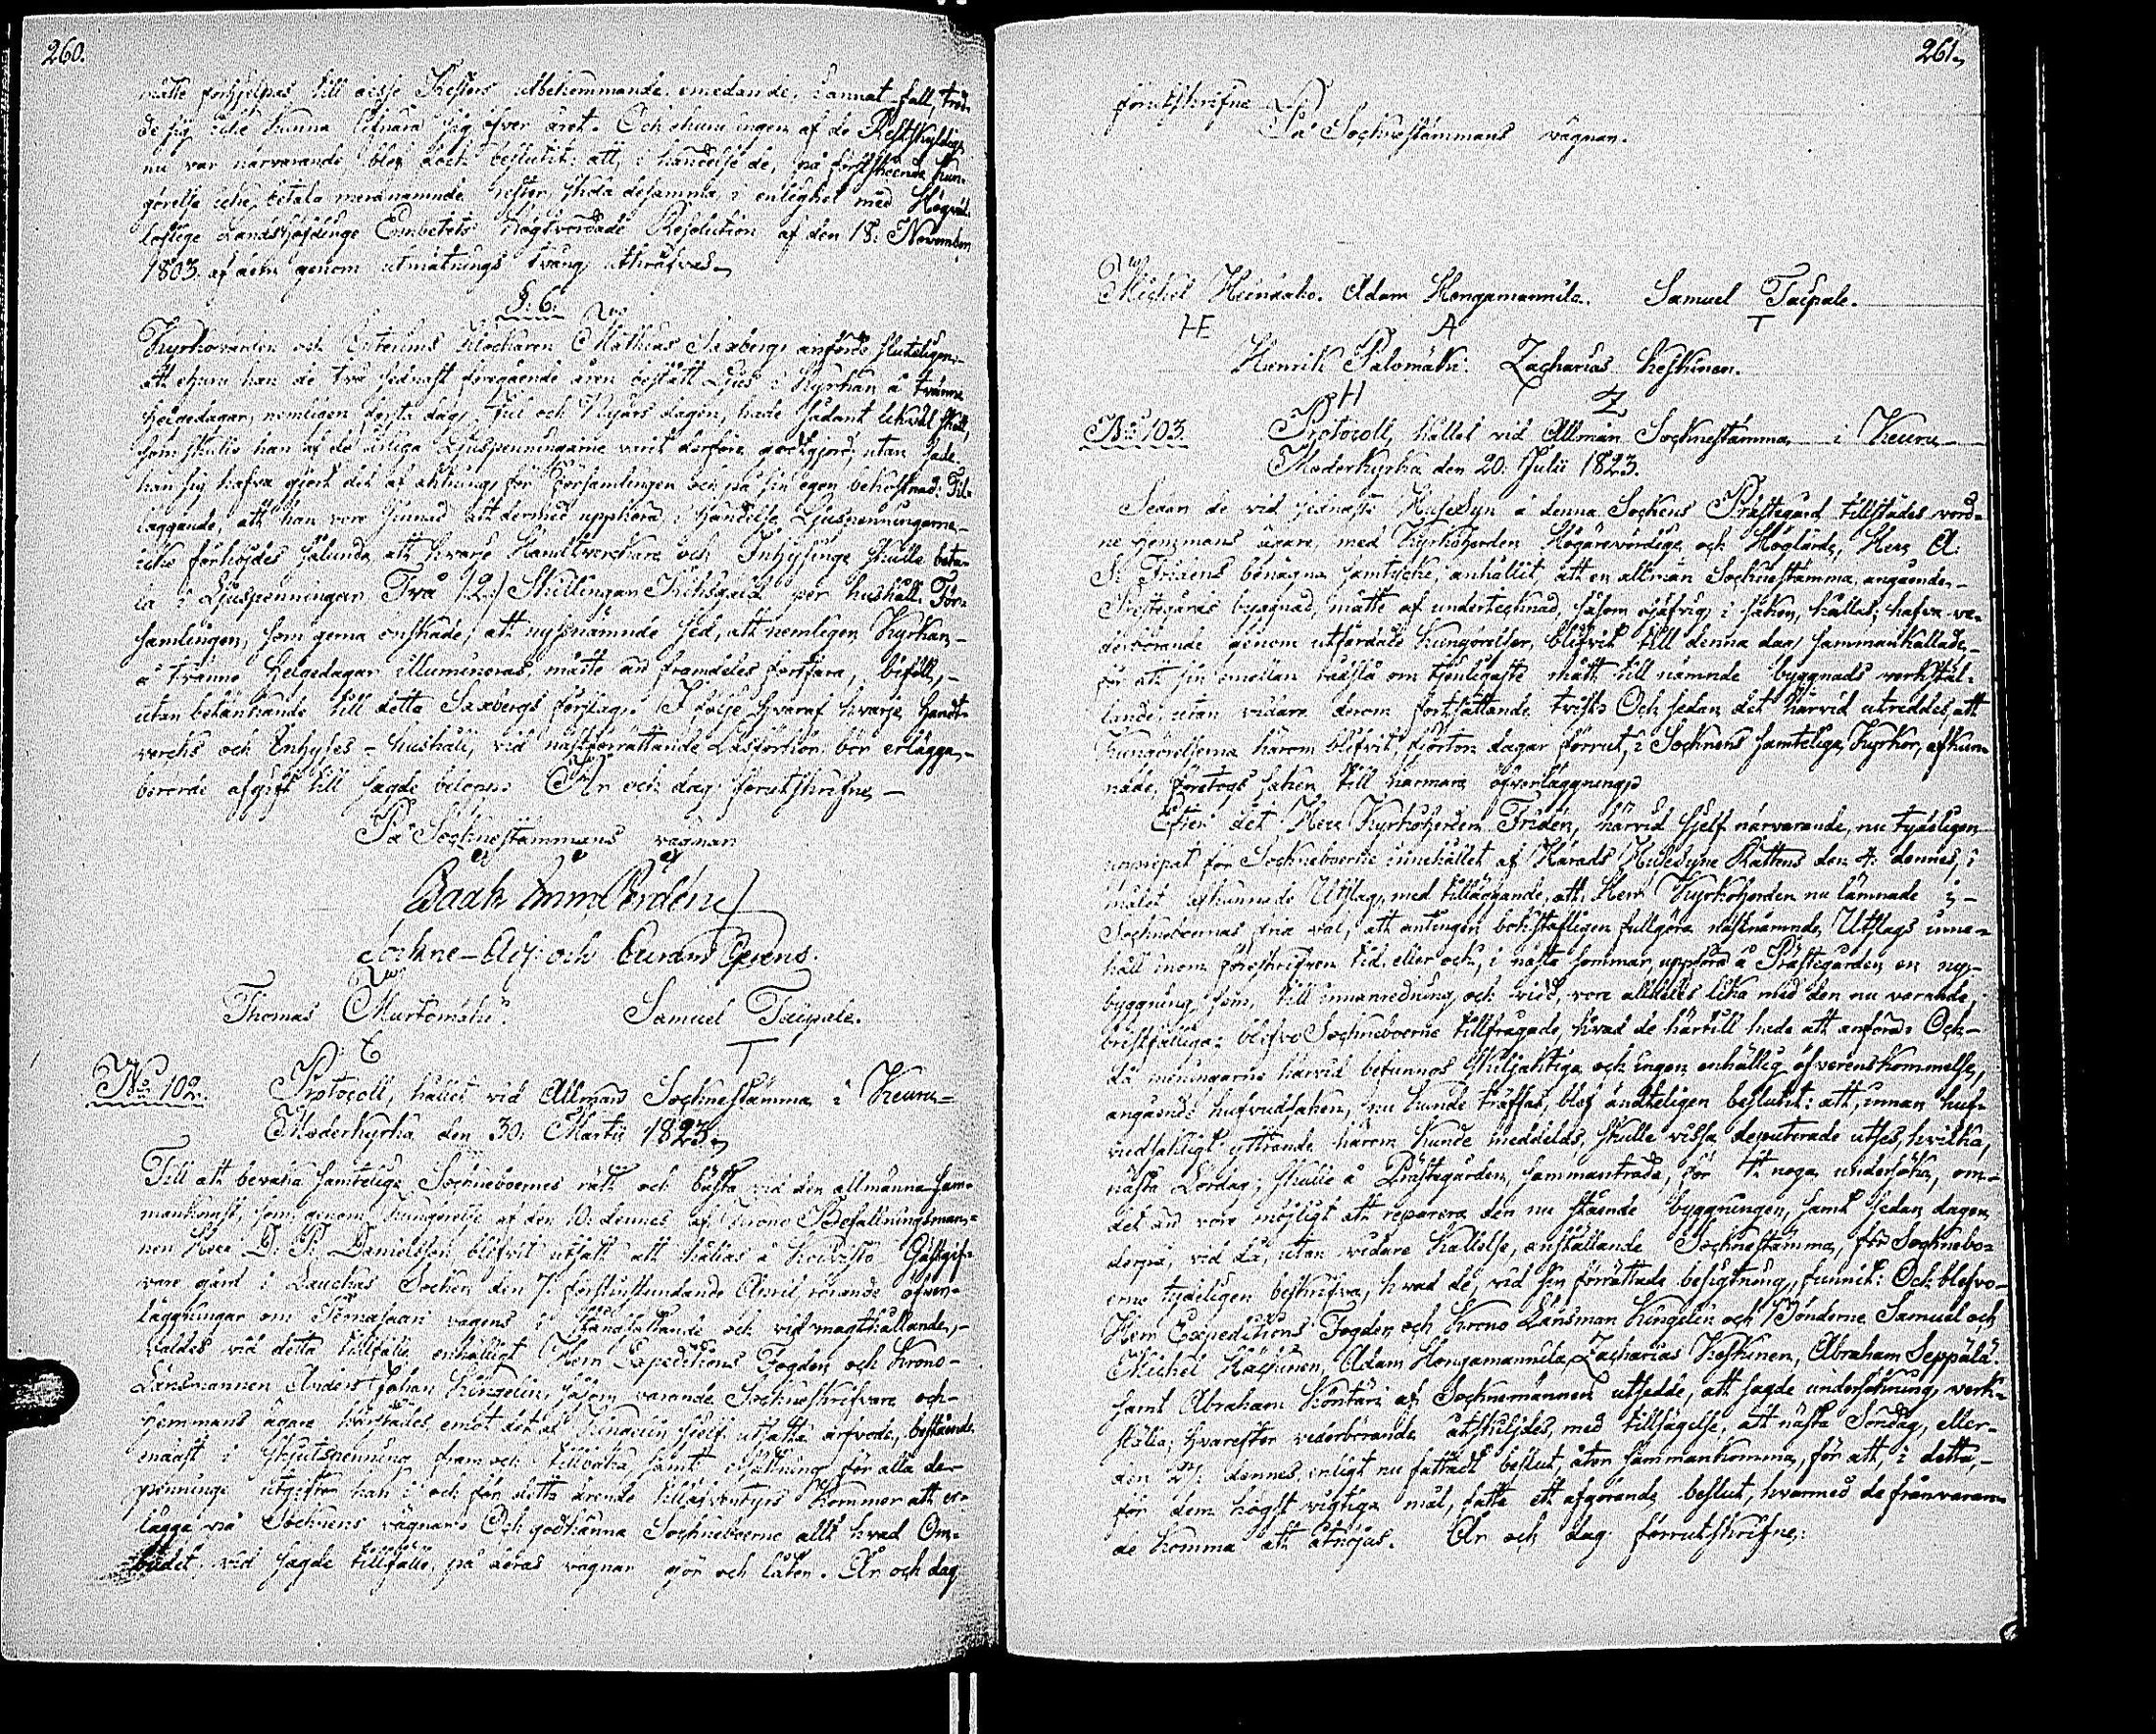 260.
måtte förhjelpas till desse Resters utbekommande, emedan de, i annat fall, trod-
de sig icke kunna lifnära sig öfver året. Och ehuru ingen af de Restskyldige
nu var närvarande blef dock beslutit: att, i händelse de, på förestående kun-
görelse icke betala meranämnde rester, skola desamma, i enlighet med Högväl-
loflige Landshöfdinge Embetets Högtvördade Resolution af den 18. November
1803. af dem genom utmätnings tvång utkräfvas.
§. 6.
Kyrkovärden och Interims Klockaren Mathias Saxberg, anförde sluteligen
att ehuru han de två sednast föregående åren bestått Ljus i Kyrkan å tvänne
helgedagar, nemligen första dag Jul och Nyårs dagen, hade sådant likväl skett,
som skulle han af de årliga Ljuspenningarne varit derföre godtgjord, utan sade
han sig hafva gjort det af aktning för Församlingen och på sin egen bekostnad. Til-
läggande, att han vore sinnad att dermed upphöra, i händelse Ljuspenningarne
icke förhöjdes sålunda, att hvarje Handtverckare och Inhysinge skulle beta-
la i Ljuspenningar Två (2.) Skillingar Riksgäld per hushåll. För-
samlingen, som gerna önskade, att nyssnämnde sed, att nemligen Kyrkan
å tvänne helgedagar illumineras, måtte än framdeles fortfara, biföll,
utan betänkande till detta Saxbergs förslag. I följe hvaraf hvarje handt-
verks och Inhyses-hushåll, vid nästförrättande Läsförhör, bör erlägga
berörde afgift till sagde belopp. År och dag förutskrifne
På Sockneståmmans vägnar
Isaak Imm
Sockne-Adj. och Curam Gerens.
Thomas Murtomäki. Samuel Taipale.
T
No 102. Protocoll, hållet vid Allmän Socknestämma i Keuru
Moderkyrka den 30. Martii 1823.
Till att bevaka samtelige Socknboernes rätt och bästa vid den allmänna sam-
mankomst, som genom kungörelse af den 10. dennes af Krono Befallningsman-
nen Herr D. P. Danielsson blifvit utsatt att hållas å Koivisto Gästgif-
vare gård i Laukas Socken den 7. förstinstundande April rörande öfver-
läggningar om vägens i ståndsättande och vidmagthållande,
valdes vid detta tillfälle enhälligt Herr Expeditions Fogden och Krono
Länsmannen Anders Johan Kingelin, såsom varande Socknskrifvare och
hemmans ägare härstädes, emot det af Kingelin sjelf utsatta arfvode, bestående
enaäst i skjutspenning fram och tillbaka samt ersättning för alla de
penninge utgifter han i och för detta ärende tilläfventyrs kommer att er-
lägga på Socknens vägnar. Och godkänna Socknboerne allt hvad Om-
budet, vid sagde tillfälle, på deras vägnar gör och låter. År och dag
261.
förutskrifne
På Socknestämmans vägnar.
Michel Heinäaho. Adam Hongamannila. Samuel Taipale.
HE A T
Henrik Palomäki. Zacharias Keskinen.
H Z
No 103. Protocoll, hållet vid Allmän Socknestämma i Keuru
Moderkyrka den 20. Julii 1823.
Sedan de vid sednaste HuseSyn å denna Sockens Prästegård tillstädes vord-
ne hemmans ägare, med Kyrkoherden Högärevördige och Höglärde, Herr A.
Fridéns benägna samtycke, anhållit, att en allmän Socknestämma, angående
Prästegårds byggnad, måtte af undertecknad, såsom ojäfvig i saken, hållas; hafva ve-
derbörande genom utfärdade kungörelser, blifvit till denna dag sammankallade,
för att sin emellan rådslå om tjenligaste mått till nämnde byggnads verkstäl-
lande, utan vidare derom fortsättande tvist. Och sedan det härvid utreddes, att
kungörelserna härom blifvit, fjorton dagar förrut, i Socknens samtelige Kyrkor, afkun-
nade, företogs saken till närmare öfverläggning.
Efter det Herr Kyrkoherden Fridén, härvid sjelf närvarande, nu tydeligen
upprepat för Socknboerne innehållet af Härads HuseSyns Rättens den 4. dennes, i
målet afkunnade Utslag, med tilläggande, att Herr Kyrkoherden nu lämnade i
Socknboernas fria val, att antingen bokstafligen fullgöra nästnämnde Utslags inne-
håll inom föreskrifven tid eller ock, i nästa sommar, uppföra å Prästegården en ny
byggning, som, till innanredning och vidd, vore alldeles lika med den nu varande,
bristfälliga: blefvo Socknboerne tillfrågade, hvad de härtill hade att anföra. Och
då meningarne härvid befunnos skiljaktiga och ingen enhällig öfverenskommelse,
angående hufvudsaken, nu kunde träffas, blef ändteligen beslutit: att, innan huf-
vudsakligt yttrande härom kunde meddelas, skulle vissa deputerade utses, hvilka,
nästa Lördag, skulle å Prästegården, sammanträda, för att noga undersöka, om
det än vore möjligt att reparera den nu stående byggningen, samt sedan dagen
derpå, vid då, utan vidare kallelse, anställande Socknestämma, för Socknebo-
erne tydeligen beskrifva, hvad de, vid sin förrättade besigtning, funnit: Och blefvo
Herr Expeditions Fogden och Krono Länsman Kingelin och Bönderne Samuel och
Michel Adam Hongamannila, Zacharias Keskinen, Abraham Seppälä
samt Abraham Köntäri af Socknemännen utsedde, att sagde undersökning verk-
ställa; hvarefter vederbörande åtskiljdes, med tillsägelse, att nästa Söndag, eller
den 27. dennes, enligt nu fattadt beslut, åter sammankomma, för att, i detta,
för dem högst vigtiga mål, fatta ett afgörande beslut, hvarmed de frånvaran-
de komma att åtnöjas. År och dag förrutskrifne: